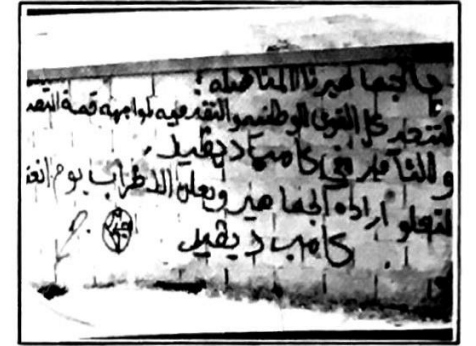 يا جماهيرنا المناضله :
لتتحد كل القوى الوطنيه والتقدميه لمواجهة قمة
والتآمر في كامب ديفيد .
لتعلو ارادة الجماهير ويعلن الاضراب يوم
كامب ديفيد